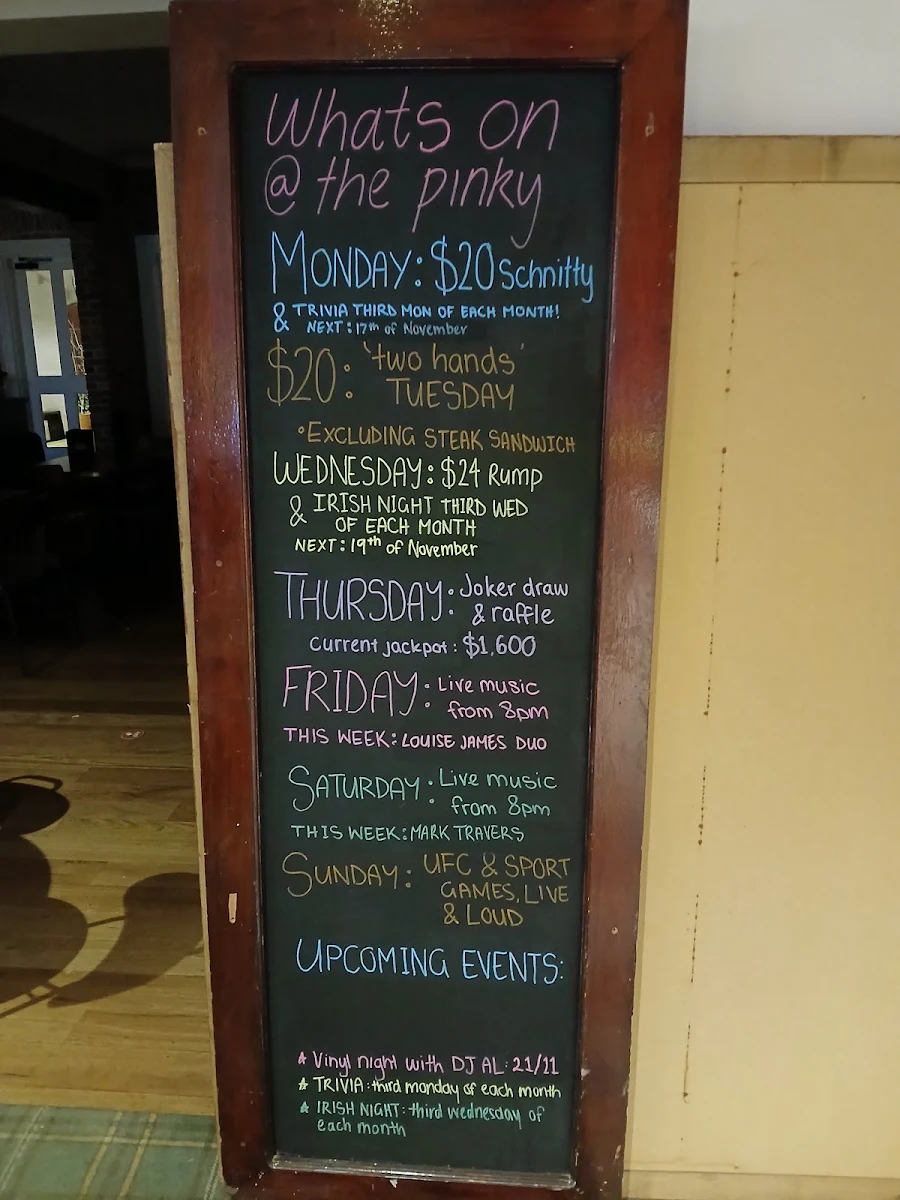 Whats on
@ the pinky
MONDAY: $20 Schnitty
& TRIVIA THIRD MON OF EACH MONTH!
NEXT: 17th of November
$20: 'two hands'
TUESDAY
•EXCLUDING STEAK SANDWICH
WEDNESDAY: $24 Rump
& IRISH NIGHT THIRD WED
OF EACH MONTH
NEXT: 19th of November
THURSDAY: Joker draw
& raffle
Current jackpot: $1,600
FRIDAY: Live music
from 8pm
THIS WEEK: LOUISE JAMES DUO
SATURDAY: Live music
from 8pm
THIS WEEK: MARK TRAVERS
SUNDAY: UFC & SPORT
GAMES, LIVE
& LOUD
UPCOMING EVENTS:
☆ Vinyl night with DJ AL: 21/11
☆ TRIVIA: third monday of each month
☆ IRISH NIGHT: third wednesday of
each month